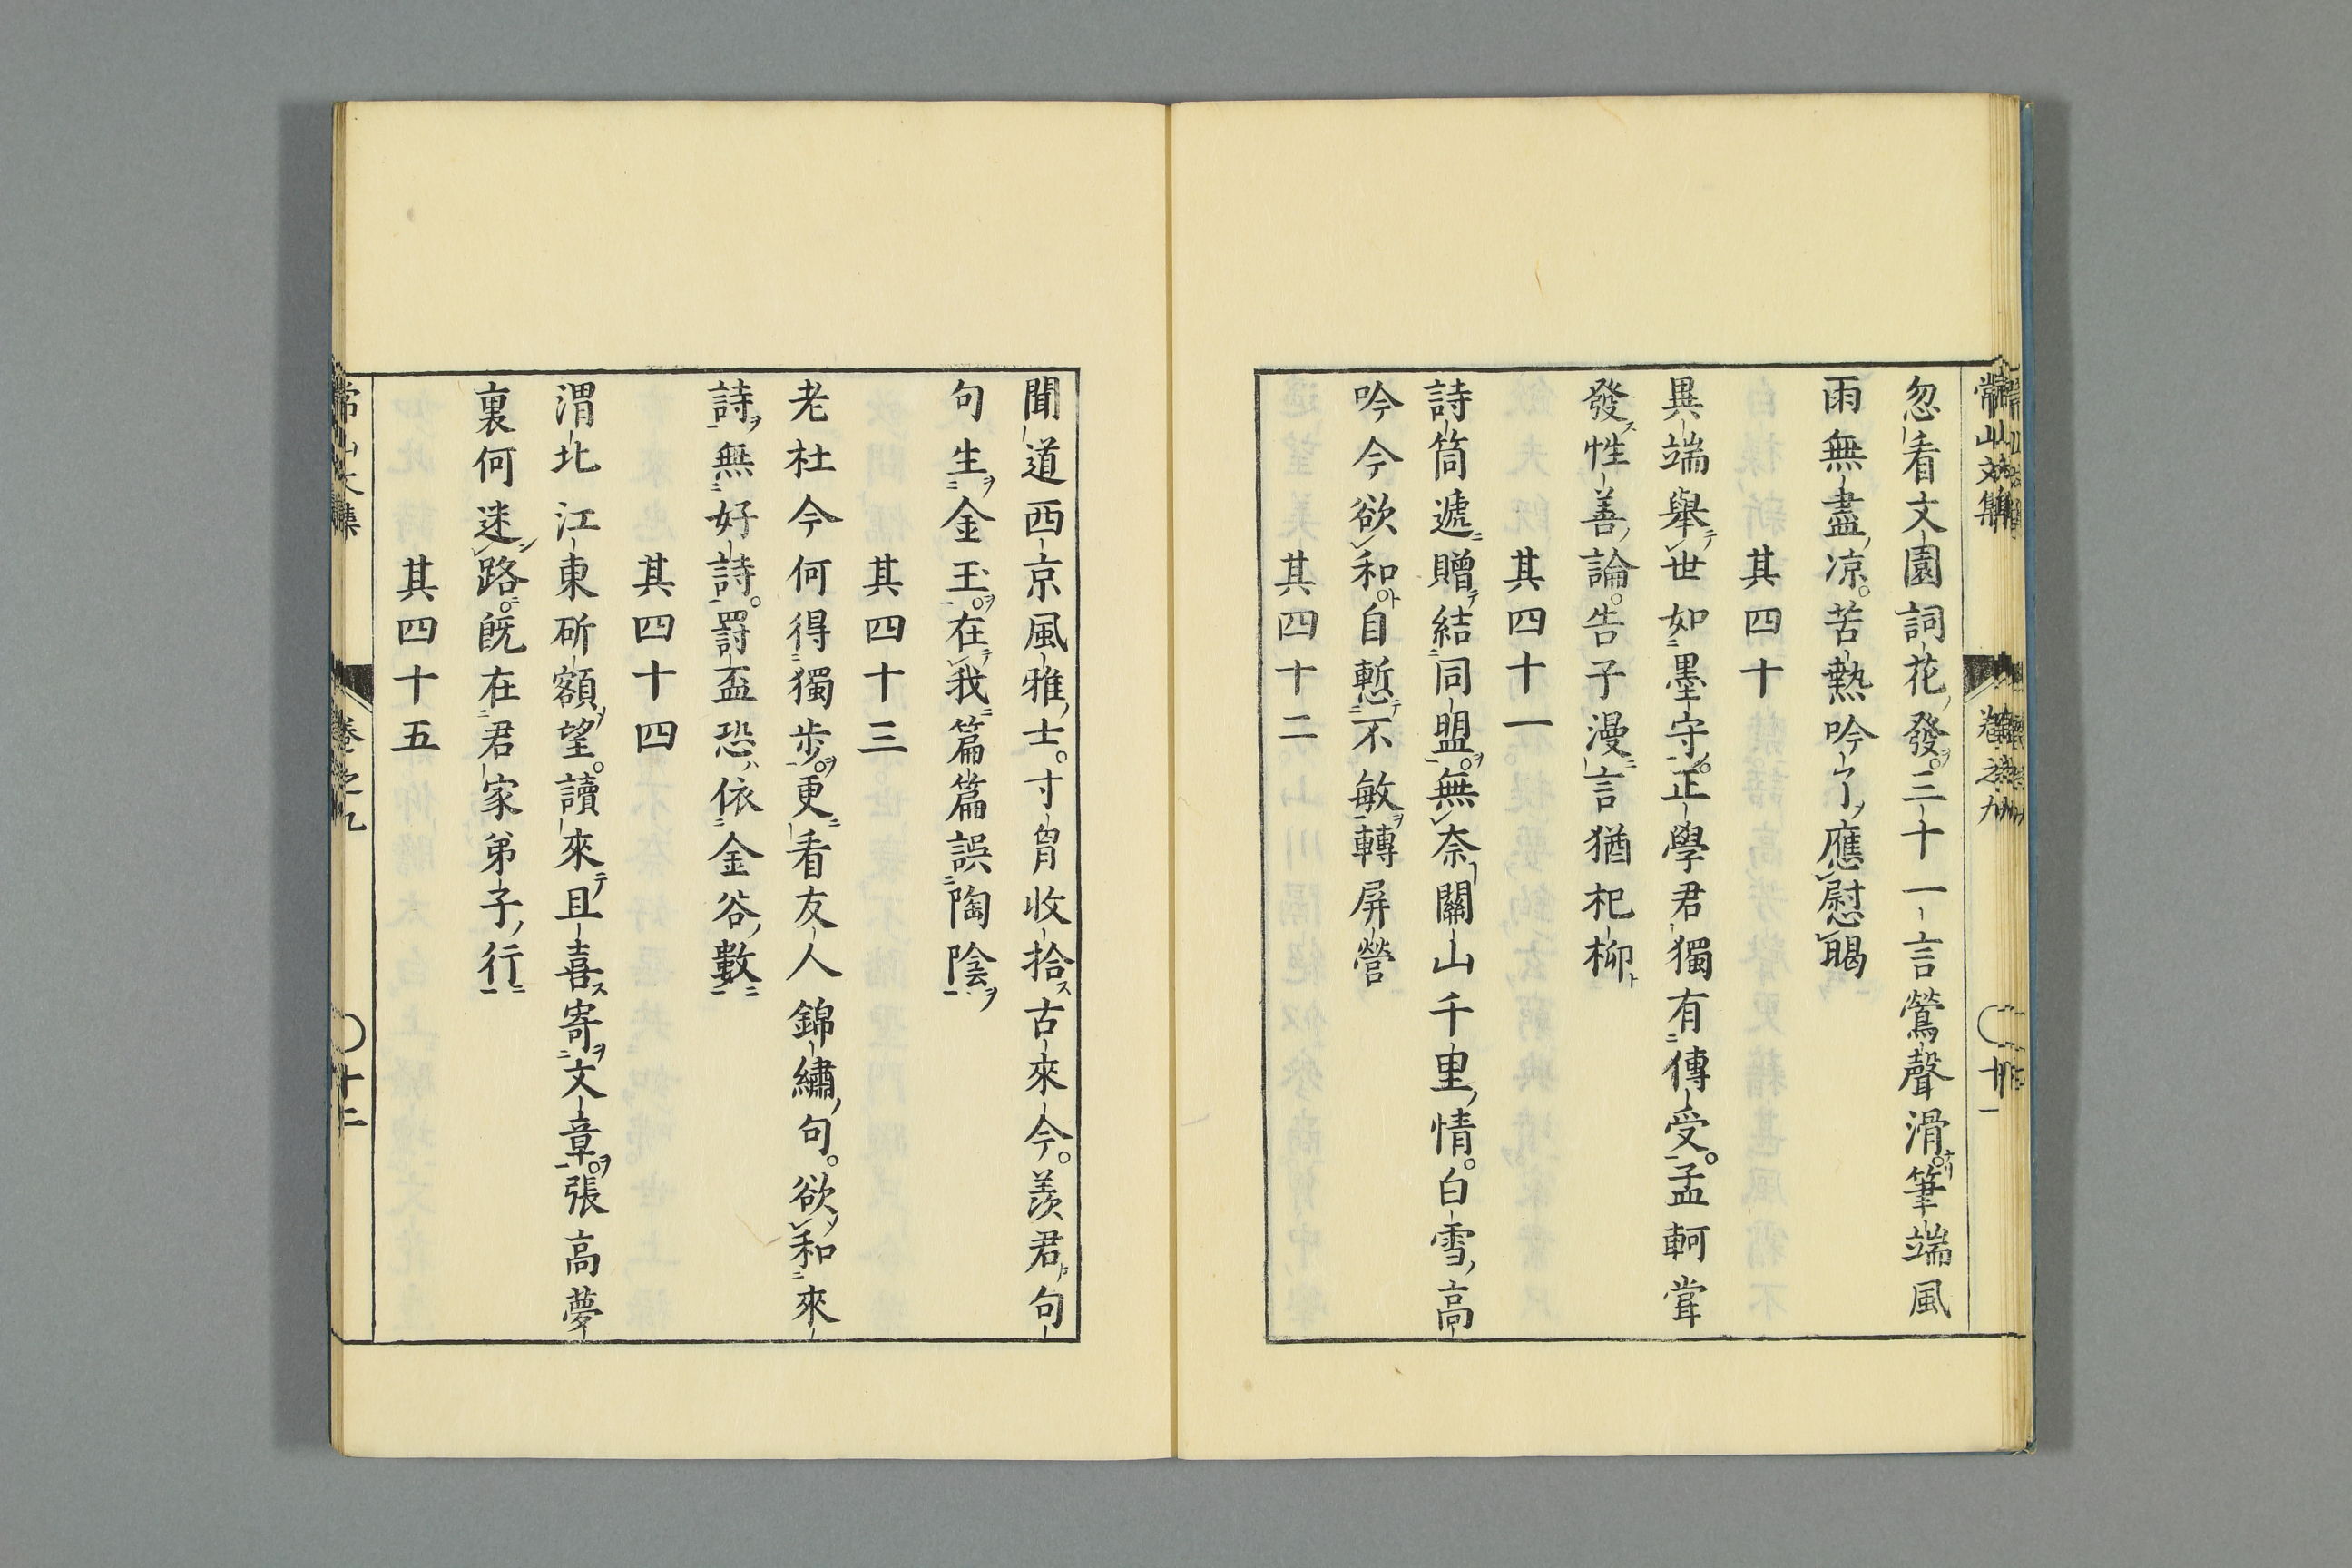 常山文集 卷之九 〇十一
忽看文園詞花發三十一言鶯聲滑筆端風
雨無盡凉苦熱吟了應慰暍
其四十
異端舉世如墨守正學君獨有傳受孟軻嘗
發性善論告子漫言猶杞柳
其四十一
詩筒遞贈結同盟無奈關山千里情白雪高
吟今欲和自慙不敏轉屏營
其四十二
聞道西京風雅士寸胷收拾古來今羨君句
句生金玉在我篇篇誤陶陰
其四十三
老杜今何得獨步更看友人錦繡句欲和來
詩無好詩罸盃恐依金谷數
其四十四
渭北江東斫額望讀來且喜寄文章張高夢
裏何迷路旣在君家弟子行
其四十五
常山文集 卷之九 〇十二